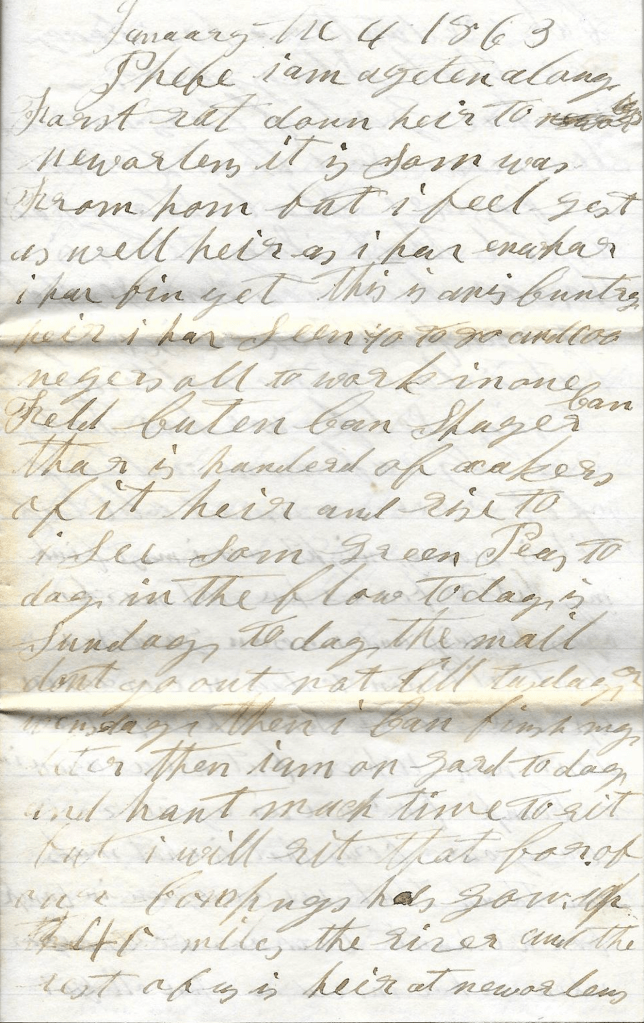 January the 4 1863
Phebe i am a geten along
Farst rat doun heir to
neworlens it is Som was
From hom but i feel gest
as well heir as i har enwhar
i har bin yet this is a nis Cuntry
heir i har Seen to go and
negers all to work in one
Field Cuten Can Shuger Can
thar is handerd of aakers
of it heir and rise to
i See Som green Peas to
day in the blow to day is
Sunday to day the mail
dont go out nat till tusday or
wensday then i Can finsh my
then i am on gard to day
and hant much time to rit
but i will rit that for of
our Compnys has gon up
45 miles the river and the
rest of us is heir at neworlens